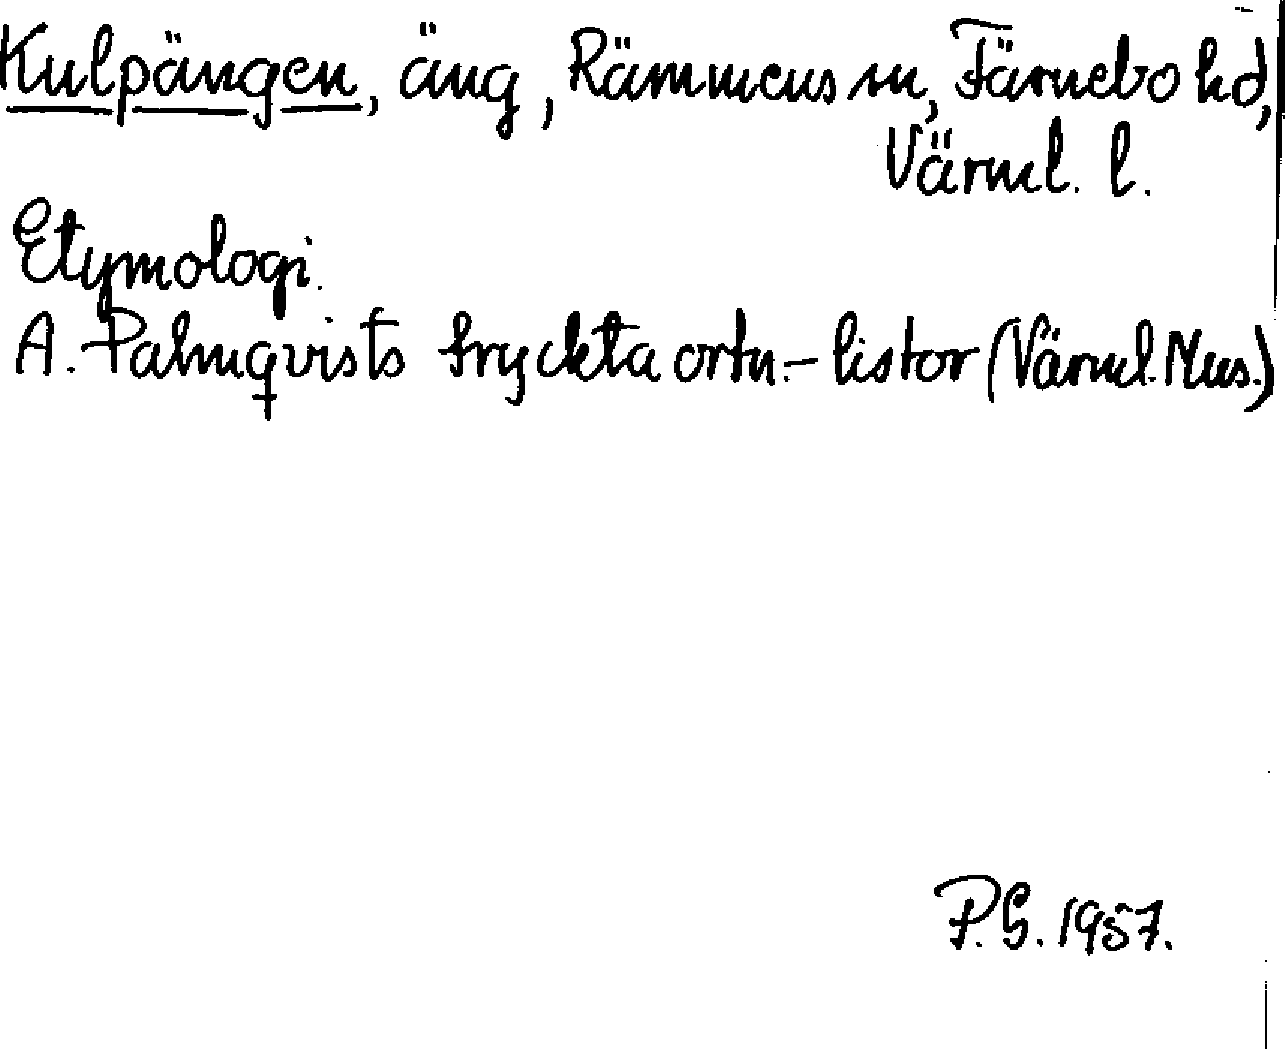 Kulpängen, äng, Rämmens sn, Färnebo hd,
Värml. l.
Etymologi.
A. Palmqvists tryckta ortn.-listor (Värml. Mus.)
P.G. 1957.